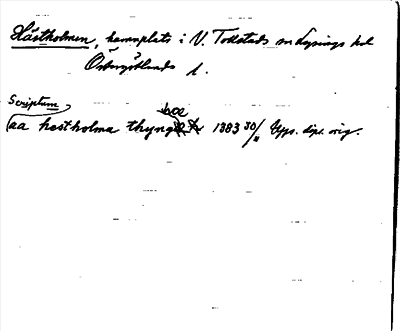 Hästholmen, hamnplats i V. Tollstads sn Lysings hd
Östergötlands l.
Scriptum
aa hestholma thynghæ 1383 30/ Upps. dipl. orig.